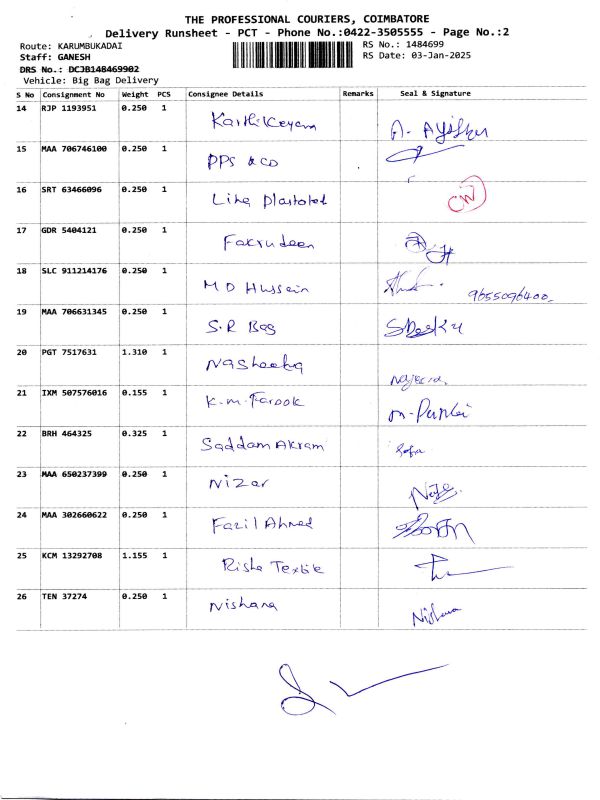 THE PROFESSIONAL COURIERS, COIMBATORE
Delivery Runsheet - PCT - Phone No.:0422-3505555 - Page No.:2
Route: KARUMBUKADAI RS No.: 1484699
Staff: GANESH RS Date: 03-Jan-2025
DRS No.: DCJB148469902
Vehicle: Big Bag Delivery
S No Consignment No Weight PCS Consignee Details Remarks Seal & Signature
14 RJP 1193951 0.250 1 Karthikeyam
15 MAA 706746100 0.250 1 PPS & CO
16 SRT 63466096 0.250 1 CW
17 GDR 5404121 0.250 1 Fakrudeen
18 SLC 911214176 0.250 1 M D Hussain 9655096400
19 MAA 706631345 0.250 1 S.R Bag
20 PGT 7517631 1.310 1
21 IXM 507576016 0.155 1 K.M.Farook
22 BRH 464325 0.325 1 Saddam Akram
23 MAA 650237399 0.250 1 Nizar
24 MAA 302660622 0.250 1 Fazil Ahmed
25 KCM 13292708 1.155 1 Risha Textile
26 TEN 37274 0.250 1 Nishana Nishana